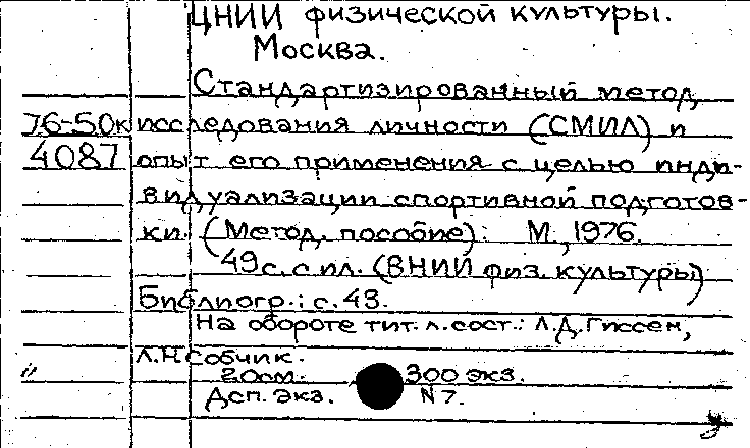 ЦНИИ физической культуры.
Москва.
Стандартизированный метод
76-50к исследования личности (СМИЛ) и
4087 опыт его применения с целью инди-
видуализации спортивной подготов-
ки. (Метод. пособие). М., 1976.
49с. с ил. (ВНИИ физ. культуры)
Библиогр.: с. 43.
На обороте тит. л. сост.: Л.Д. Гиссен,
Л.Н Собчик.
20см. 300 экз.
Дсп. экз. N 7.